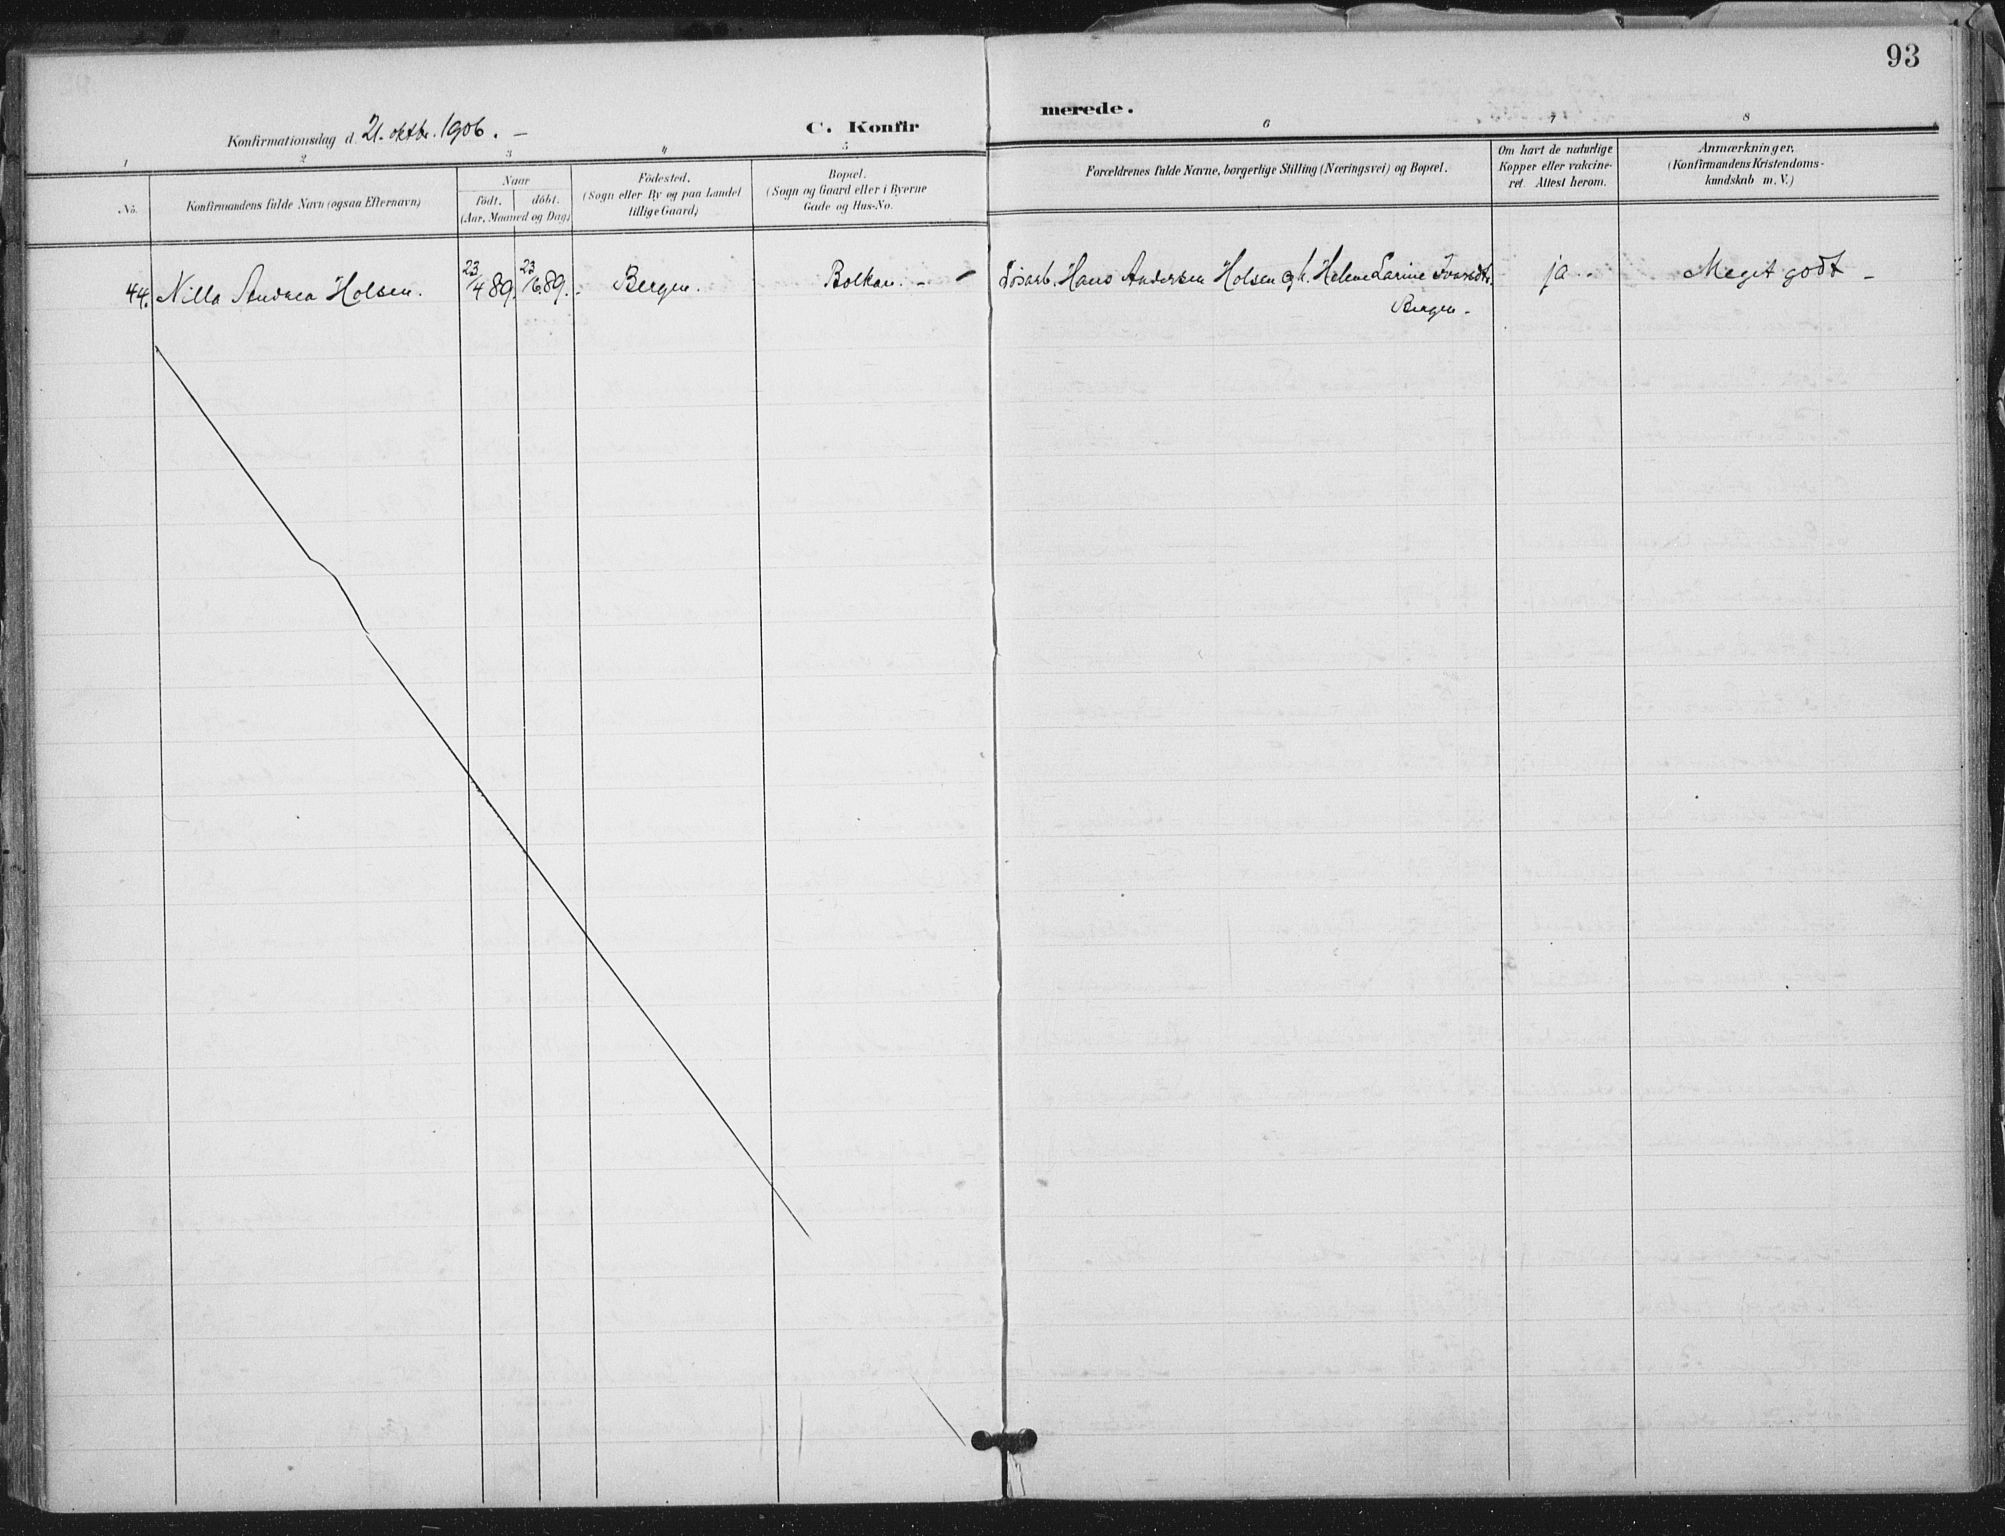 93
Konfirmationsdag d. 21. oktbr. 1906. –
C. Konfir
merede.
1 2 3 4 5 6 7 8
No.
Konfirmandens fulde Navn (ogsaa Efternavn)
Naar
født. døbt.
(Aar, Maaned og Dag)
Fødested.
(Sogn eller By og paa Landet
tillige Gaard)
Bopæl.
(Sogn og Gaard eller i Byerne
Gade og Hus-No.
Forældrenes fulde Navne, borgerlige Stilling (Næringsvei) og Bopæl.
Om havt de naturlige
Kopper eller vakcine-
ret. Attest herom.
Anmærkninger,
(Konfirmandens Kristendoms-
kundskab m. V.)
44. Nilla Andrea Holsen. 23/4 89. 23/6 89. Bergen. Bolkan. – – Løsarb. Hans Andersen Holsen og h. Helene Larine ja. . Meget godt –
Bergen.